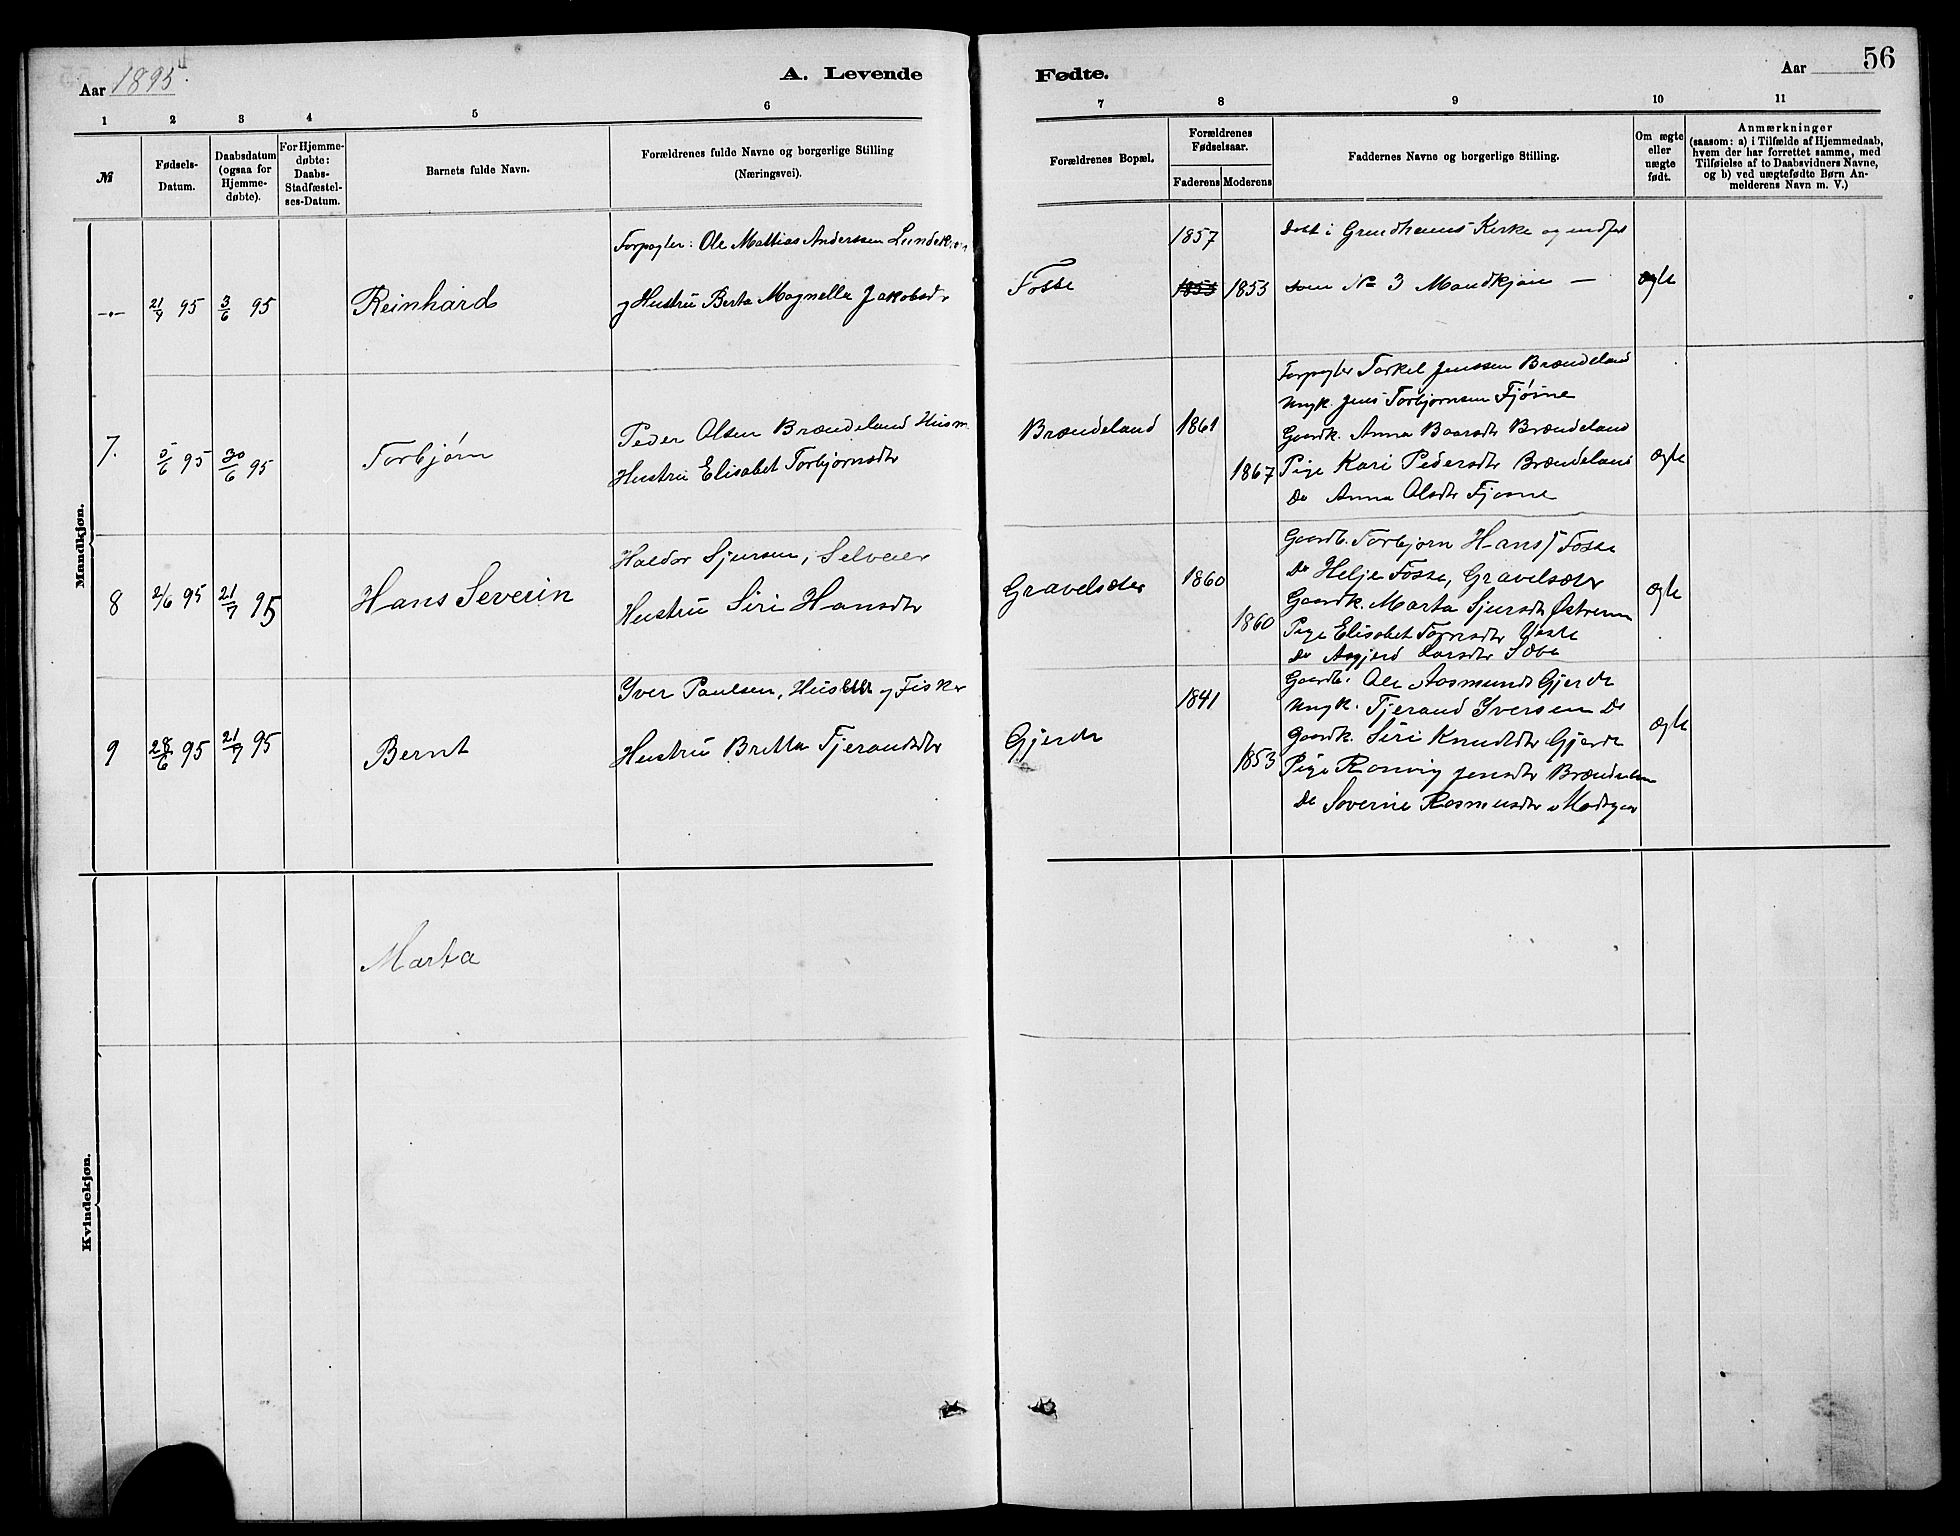 Aar 1895.
A. Levende
Fødte.
Aar
56
1 2 3 4 5 6
7 8 9 10 11
№
Fødsels-
Datum.
Daabsdatum
(ogsaa for
Hjemme-
døbte).
For Hjemme-
døbte:
Daabs-
Stadfæstel-
ses-Datum.
Barnets fulde Navn.
Forældrenes fulde Navne og borgerlige Stilling
(Næringsvei).
Forældrenes Bopæl.
Forældrenes
Fødselsaar.
Faderens Moderens
Faddernes Navne og borgerlige Stilling.
Om ægte
eller
uægte
født.
Anmærkninger
(saasom: a) i Tilfælde af Hjemmedaab,
hvem der har forrettet samme, med
Tilføielse af to Daabsvidners Navne,
og b) ved uægtefødte Børn An-
melderens Navn m. V.)
Mandkjøn.
21/4 95
3/6 95
Reinhard
Forpagter: Ole Mattias Anderssen
og Hustru Berta Magnella Jakobsdr
Fosse
1857
1855
1853
Døbt i Grindheims Kirke og indført
som No 3 Mandkjøn —
ægte
7.
5/6 95
30/6 95
Torbjørn
Peder Olsen Brændeland Husm.
Hustru Elisabet Torbjørnsdtr
Brændeland
1861
1867
Forpagter Torkel Jenssen Brændeland
Ungk. Jens Torbjørnsen Fjøsne
Gaardk. Anna Baarsdtr Brændeland
Pige Kari Pedersdtr Brændeland
Do Anna Olsdtr Fjøsne
ægte
8
2/6 95
21/7 95
Hans Severin
Haldor Sjursen, Selveier
Hustru Siri Hansdtr
Gravelsæter
1860
1860
Gaardb. Torbjørn Hans) Fosse
Do Helje Fosse, Gravelsæter
Gaardk. Marta Sjursdtr Østrem
Pige Elisabet
Do Larsdtr
ægte
9
28/6 95
21/7 95
Bernt
Yver Paulsen, og Fisker
Hustru Britta Tjerandsdtr
Gjerde
1841
1853
Gaardb. Ole Aasmunds Gjerde
Ungk. Tjerand Yversen Do
Gaardk. Siri Knudsdtr Gjerde
Pige Ranvig Jensdtr
Do Soverine Rasmusdtr
ægte
Kvindekjøn.
Marta